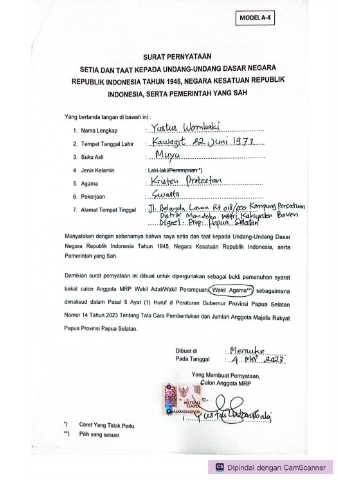 MODEL A-4
SURAT PERNYATAAN
SETIA DAN TAAT KEPADA UNDANG-UNDANG DASAR NEGARA
REPUBLIK INDONESIA TAHUN 1945, NEGARA KESATUAN REPUBLIK
INDONESIA, SERTA PEMERINTAH YANG SAH
Yang bertanda tangan di bawah ini :
1. Nama Lengkap : Yustus Wombaki
2. Tempat Tanggal Lahir : 22 Juni 1973
3. Suku Asli : Muyu
4. Jenis Kelamin : Laki-laki/Perempuan *)
5. Agama : Kristen Protestan
6. Pekerjaan : Swasta
7. Alamat Tempat Tinggal : Jl. Kampung Persatuan
Distrik Mandobo Kabupaten Boven
Digoel Prop. Papua Selatan
Menyatakan dengan sebenarnya bahwa saya setia dan taat kepada Undang-Undang Dasar
Negara Republik Indonesia Tahun 1945, Negara Kesatuan Republik Indonesia, serta
Pemerintah yang Sah
Demikian surat pernyataan ini dibuat untuk dipergunakan sebagai bukti pemenuhan syarat
bakal calon Anggota MRP Wakil Adat/Wakil Perempuan/Wakil Agama**) sebagaimana
dimaksud dalam Pasal 8 Ayat (1) Huruf d Peraturan Gubernur Provinsi Papua Selatan
Nomor 14 Tahun 2023 Tentang Tata Cara Pembentukan dan Jumlah Anggota Majelis Rakyat
Papua Provinsi Papua Selatan.
Dibuat di : Merauke
Pada Tanggal : 4 Mei 2023
Yang Membuat Pernyataan,
Calon Anggota MRP
*) Coret Yang Tidak Perlu
**) Pilih yang sesuai
CS Dipindai dengan CamScanner